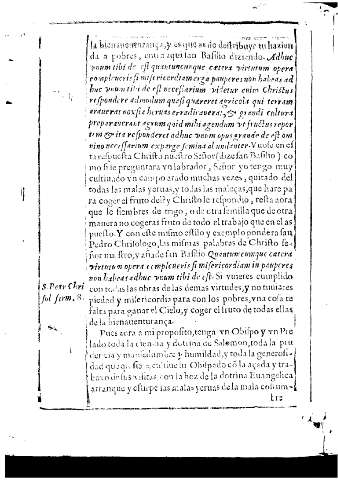 la bienauenturança, y es que as de destribuyr tu hazien
da a pobres, entra aqui san Basilio diziendo. Adhuc
vnum tibi de est quantumcumque cætera virtutum opera
compleueris si misericordiam erga pauperes non habeas ad
huc vnum tibi de est necessarium videtur enim Christus
respondere ad modum quasi quæreret agricola qui terram
arauerat noxsie heruas erradicauerat, & grandi cultura
preparauerat agrum quid mihi agendum vt fructus repor
tem & ita responderet adhuc vnum opus grande de est om
nino necessarium exparge semina
respuesta Christo nuestro Señor (dize san Basilio) co
mo si le preguntara vn labrador, Señor yo tengo muy
cultiuado vn campo arado muchas vezes, quitado del
todas las malas yeruas, y todas las maleças, que hare pa
ra coger el fruto del? y Christo le respondio, resta aora
que le siembres de trigo, o de otra semilla que de otra
manera no cogeras fruto de todo el trabajo que en el as
puesto. Y con este mismo estilo y exemplo pondera san
Pedro Chrisologo, las mismas palabras de Christo se
ñor nuestro, y añade san Basilio Quantumcumque cætera
virtutum opera compleueris si misericordiam in pauperes
non habeas adhuc vnum tibi de est. Si vuieres cumplido
con todas las obras de las demas virtudes, y no tuuieres
piedad y misericordia para con los pobres, vna cosa te
falta para ganar el Cielo, y coger el fruto de todas ellas
de la bienauenturança.
S. Petr. Chri
sol serm. 8.
Pues aora a mi proposito, tenga vn Obispo y vn Pre
lado toda la ciencia y dotrina de Salomon, toda la pru
dencia y mansedumbre y humildad, y toda la generosi
dad que quisiere cultiue su Obispado cõ la açada y tra
bajo de sus visitas con la hoz de la dotrina Euangelica
arranque y estirpe las malas yeruas de la mala costum-
bre